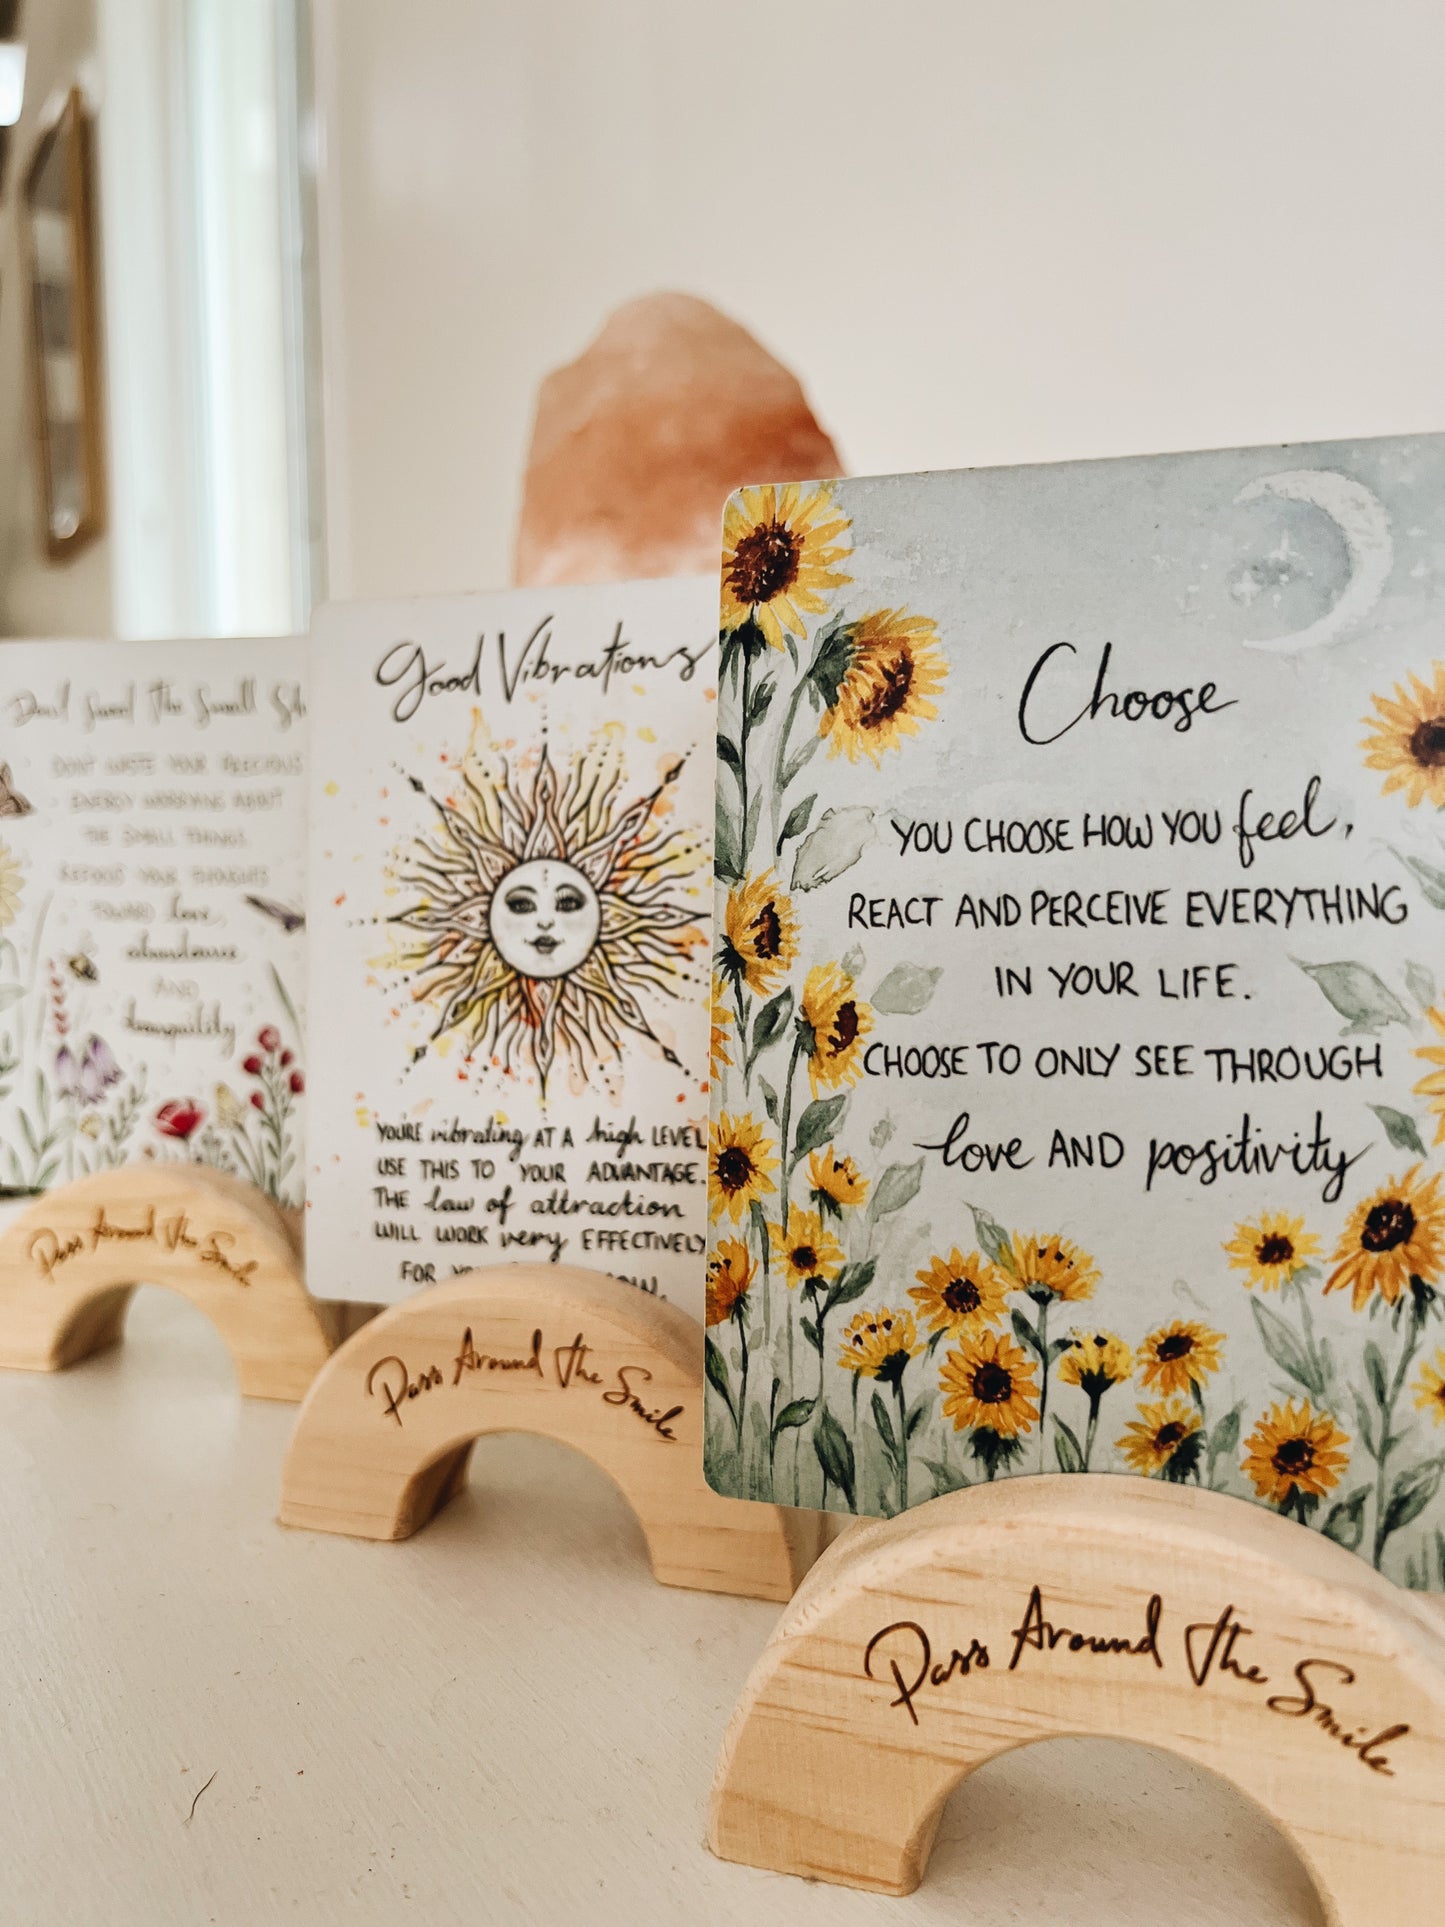 Don't Sweat The Small
DON'T WASTE YOUR PRECIOUS
ENERGY WORRYING ABOUT
THE SMALL THINGS.
REFOCUS YOUR THOUGHTS
TOWARD love,
abundance
AND
tranquility
Pass Around The Smile
Good Vibrations
YOU'RE vibrating AT A high LEVEL
USE THIS TO YOUR ADVANTAGE.
THE law of attraction
WILL WORK very EFFECTIVELY
FOR
Pass Around The Smile
Choose
YOU CHOOSE HOW YOU feel,
REACT AND PERCEIVE EVERYTHING
IN YOUR LIFE.
CHOOSE TO ONLY SEE THROUGH
love AND positivity
Pass Around The Smile